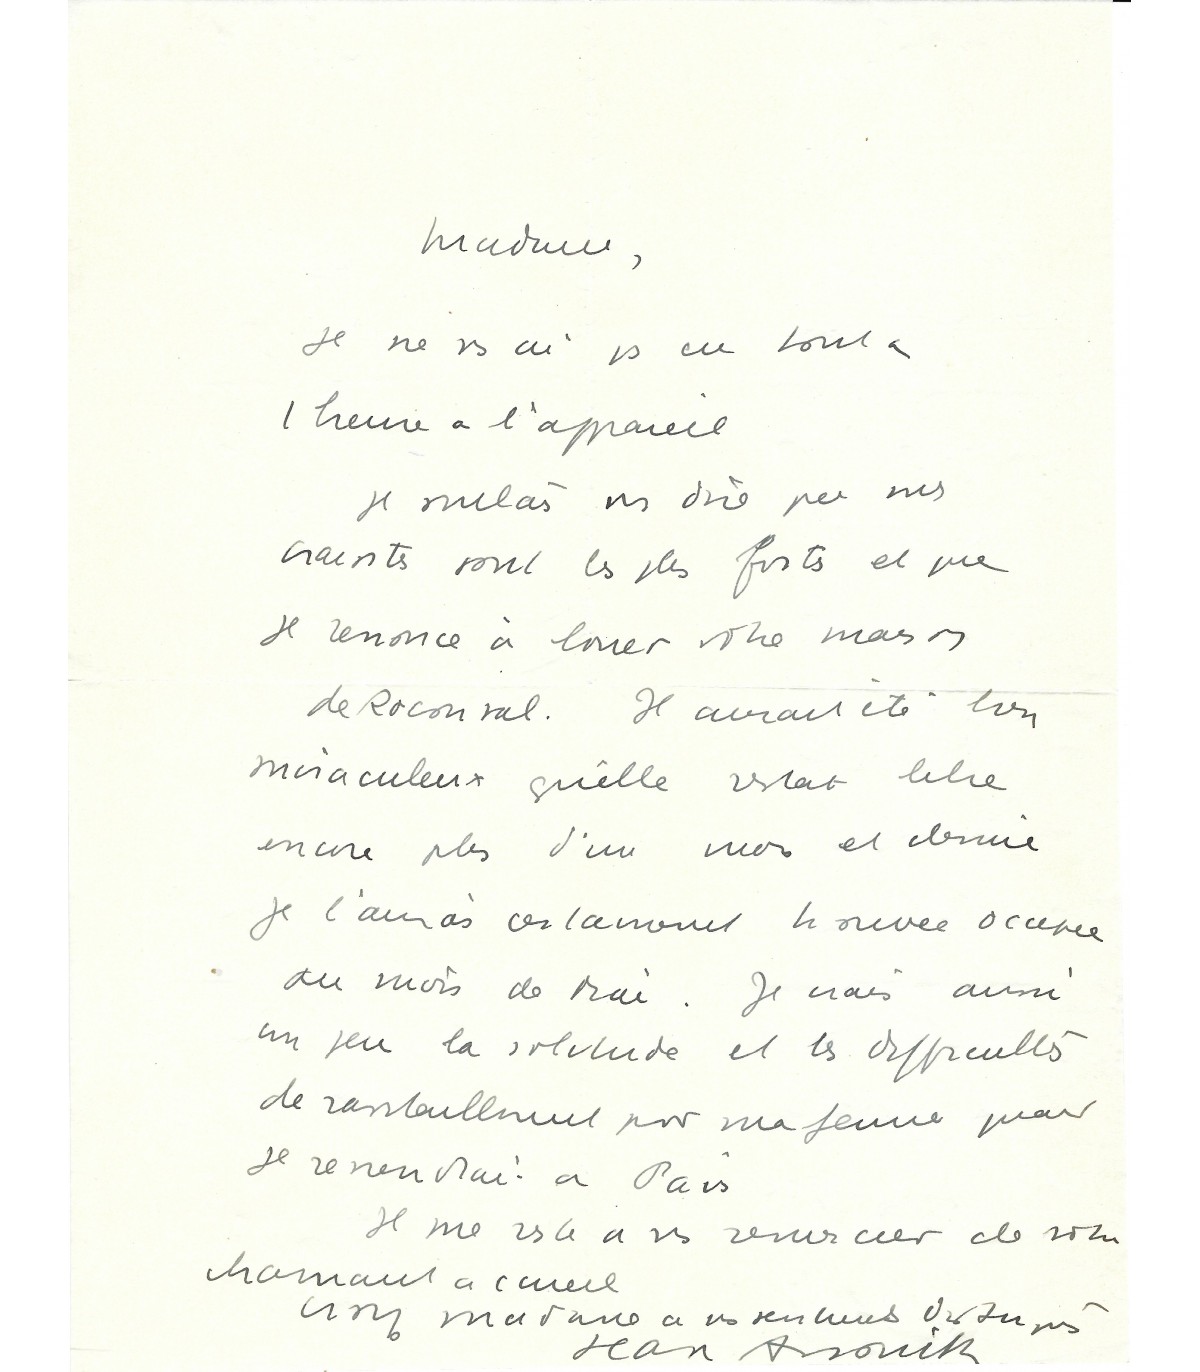 Madame,
Je ne vs ai ps eu tout a
l heure a l'appareil
Je voulais vs dire que mes
craintes sont les pls fortes et que
Je renonce à louer votre maison
de Roconval. Il aurait été bien
miraculeux qu'elle restat libre
encore pls d'un mois et demie
Je l'aurais certainement trouvée occupée
au mois de Mai. Je crais aussi
un peu la solitude et les difficultés
de ravitaillement pour ma femme quand
Je reviendrai a Paris
Il me reste a vs remercier de votre
charmant accueil
Croyez madame a vs sentiments distingués
Jean